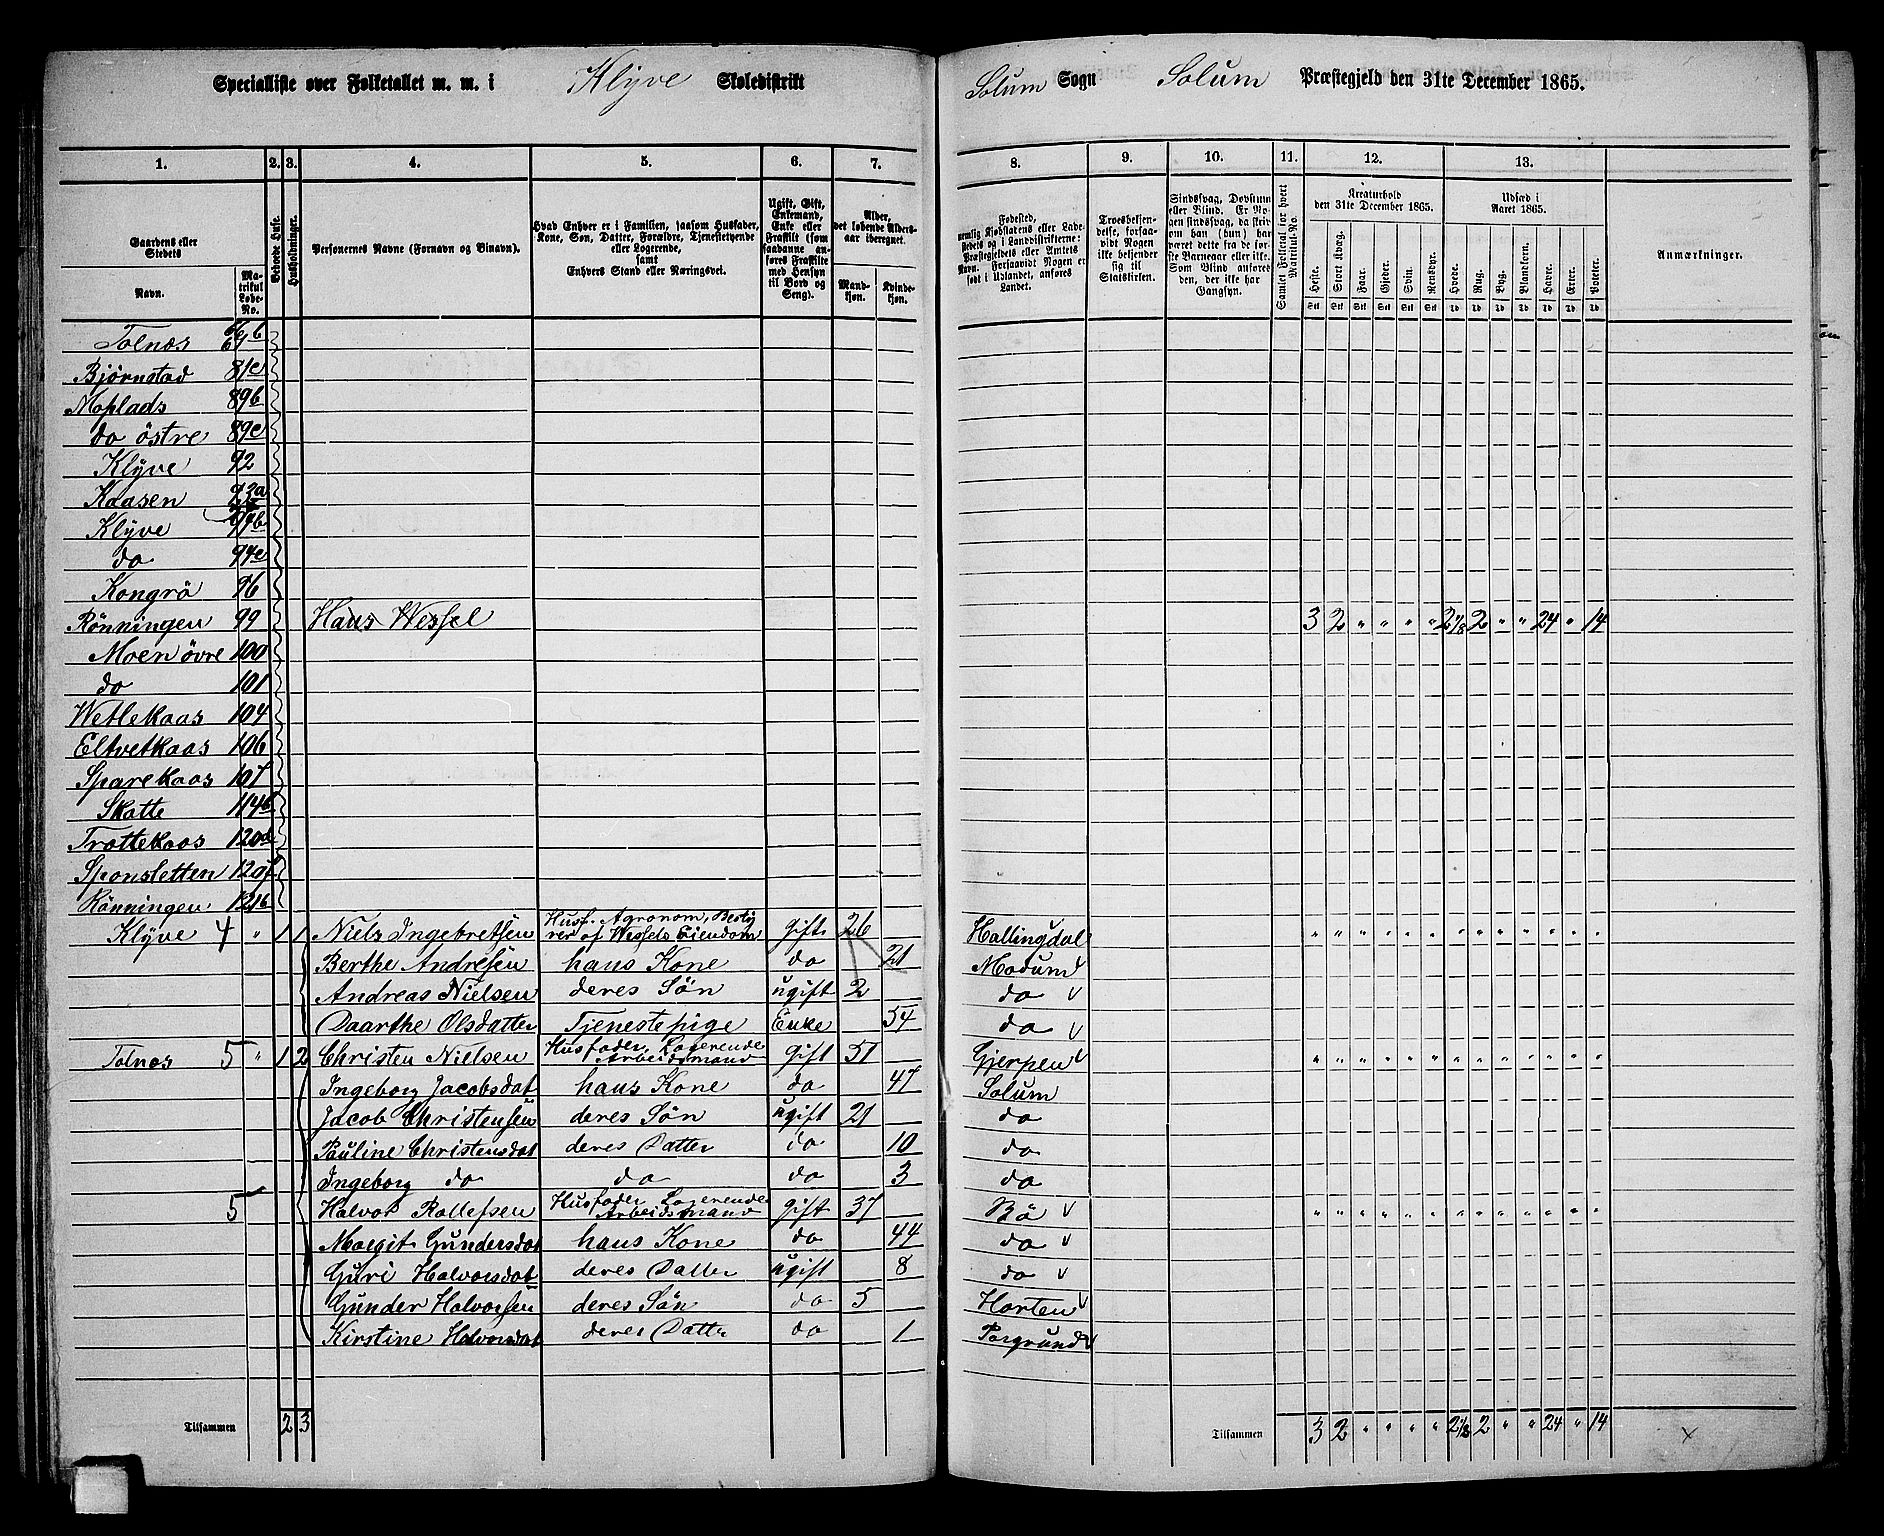 Specialliste over Folketallet m. m. i Klyve Skoledistrikt
Solum Sogn Solum Præstegjeld den 31te December 1865.
1. 2. 3. 4. 5. 6. 7. 8. 9. 10. 11. 12. 13.
Gaardens eller Stedets
Navn.
Matrikul Løbe-No.
Beboede Huse.
Husholdninger.
Personernes Navne (Fornavn og Binavn).
Hvad Enhver er i Familien, saasom Husfader, Kone, Søn, Datter, Forældre, Tjenestetyende eller Logerende, samt
Enhvers Stand eller Næringsvei.
Ugift, Gift, Enkemand, Enke eller Fraskilt (som saadanne anføres Fraskilte med Hensyn til Bord og Seng).
Alder, det løbende Aldersaar iberegnet.
Mandkjøn. Kvindekjøn.
Fødested, nemlig Kjøbstadens eller Ladestedets og i Landdistrikterne: Præstegjeldets eller Amtets Navn. Forsaavidt Nogen er født i Udlandet, anføres Landet.
Troesbekjendelse, forsaavidt Nogen ikke bekjender sig til Statskirken.
Sindssvag, Døvstum eller Blind. Er Nogen sindssvag, da skrives om han (hun) har været dette fra de første Barneaar eller ikke. Som Blind anføres den, der ikke har Gangsyn.
Samlet Folketal for hvert Matrikul-No.
Kreaturhold den 31te December 1865.
Heste. Stort Kvæg. Faar. Gjeder. Svin. Rensdyr.
Udsæd i Aaret 1865.
Hvede. Rug. Byg. Blandkorn. Havre. Erter. Poteter.
Anmærkninger.
Tolnes
Bjørnstad 81c
Moflads 89b
do östre 89c
Klÿve 92
Kaasen 93a
Klÿve 94b
do 94c
Kongrö 96
Rönningen 99 Hans Wessel 3 2 " " " " 2 1/8 2 " " 24 " 14
Moen övre 100
do 101
Wetlekaas 104
Eltvetkaas 106
Sparekaas 107
Skatte 114b
Trottekaas 120d
Sponsletten 120f
Rönningen 121b
Klÿve 4 " 1 1 Niels Ingebretsen Husf. Agronom, Bestyrer af Wessels Eiendom Gift 26 Hallingdal " " " " " " " " " " " " "
Berthe Andresen hans Kone do 21 Modum
Andreas Nielsen deres Sön ugift 2 do
Daarthe Olsdatter Tjenestepige Enke 54 do
Tolnes 5 " 1 2 Christen Nielsen Husfader, Logerende Arbeidsmand Gift 51 Gjerpen " " " " " " " " " " " " "
Ingeborg Jacobsdat hans Kone do 47 Solum
Jacob Christensen deres Sön ugift 21 do
Pauline Christensdat deres Datter do 10 do
Ingeborg do do do 3 do
5 Halvor Rollefsen Husfader Logerende Arbeidsmand Gift 37 Bö " " " " " " " " " " " " "
Margit Gundersdat hans Kone do 44 do
Guri Halvorsdat deres Datter ugift 8 do
Gunder Halvorsen deres Sön do 5 Horten
Kirstine Halvorsdat deres Datter do 1 Porsgrund
Tilsammen 2 3 Tilsammen 3 2 " " " " 2 1/8 2 " " 24 " 14